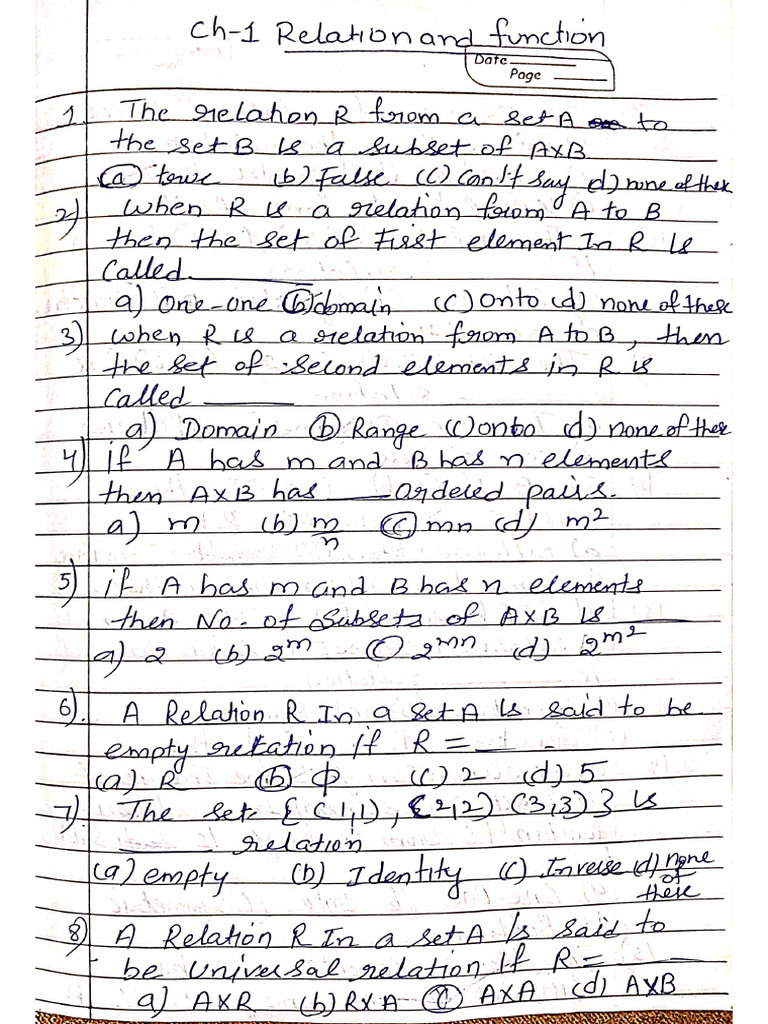 Ch-1 Relation and function
Date
Page
1. The relation R from a set A to
the set B is a subset of A×B
(a) true (b) False (c) Can't say d) none of these
2) When R is a relation from A to B
then the set of First element In R Is
Called
a) one-one (b) domain (c) Onto (d) none of these
3) when R is a relation from A to B, then
the set of second elements in R is
Called
a) Domain (b) Range (c) onto (d) none of these
4) if A has m and B has n elements
then A×B has ordeled pairs.
a) m (b) m/n (c) mn (d) m²
5) if A has m and B has n elements
then No. of Subsets of A×B is
a) 2 (b) 2^m (c) 2^mn (d) 2^m²
6). A Relation R In a set A is said to be
empty relation if R =
(a) R (b) ϕ (c) 2 (d) 5
7). The set {(1,1), (2,2) (3,3)} is
relation
(a) empty (b) Identity (c) Inverse (d) none of these
8) A Relation R In a set A Is said to
be universal relation if R =
a) A×R (b) R×A (c) A×A (d) A×B